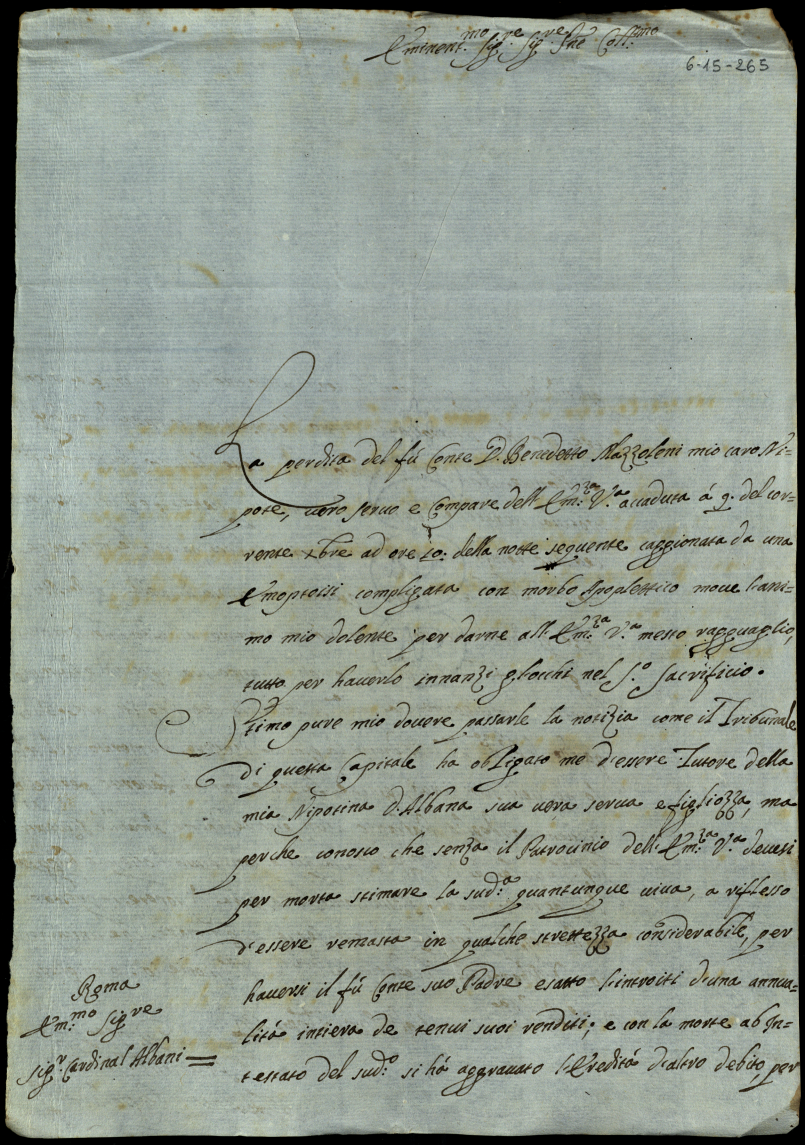 Eminent.mo Sig.re Sig.re P̃ne Coll.mo
6-15-265
La perdita del fú Conte D. Benedetto Mazzoleni mio caro Ni-
pote, vero servo e Compare dell'Em.za V.a accaduta á 9. del cor-
rente xbre ad ore 10. della notte seguente caggionata da una
Emoptoisi compligata con morbo Apoplettico move l'ani-
mo mio dolente per darne all'Em.za V.a mesto ragguaglio,
tutto per haverlo innanzi gl'occhi nel S.o Sacrificio.
Stimo pure mio dovere passarle la notizia come il Tribunale
di questa Capitale ha obligato me d'essere Tutore della
mia Nipotina D. Albana sua vera serva e figliozza, ma
perche conosco che senza il Patrocinio dell'Em.za V.a devesi
per morta stimare la sud.a quantunque viva, a riflesso
d'essere remasta in qualche strettezza considerabile, per
haversi il fú Conte suo Padre esatto l'introiti d'una annua-
litá intiera de tenui suoi renditi; e con la morte ab In-
testato del sud.o si há aggravato l'Ereditá d'altro debito, per
Roma
Em.mo Sig.re
Sig.r Cardinal Albani =